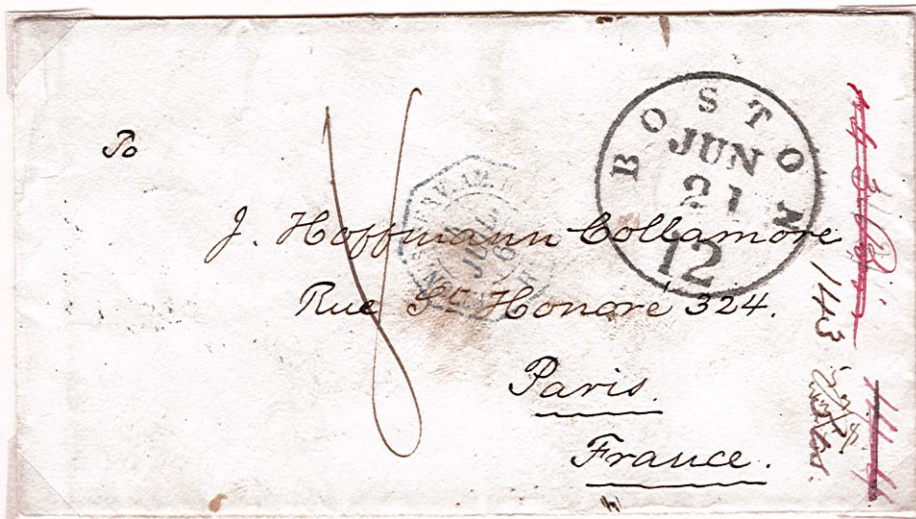 BOSTON
JUN
21
12
To
J. Hoffmann Collamore
Rue St. Honoré 324.
Paris.
France.
JUIL
6
1143